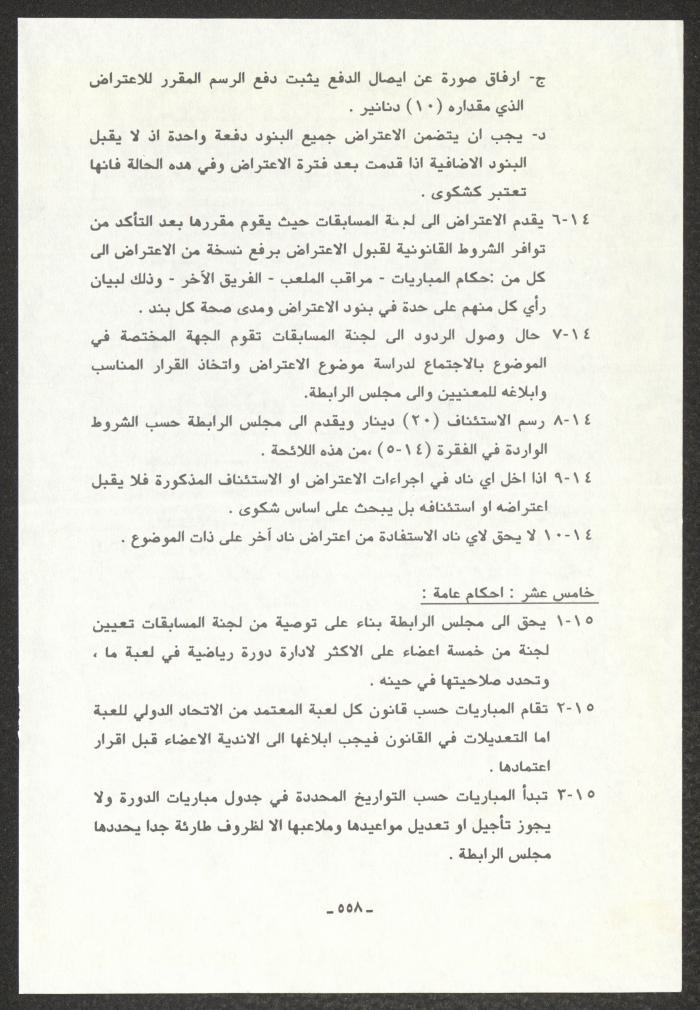 ج- ارفاق صورة عن ايصال الدفع يثبت دفع الرسم المقرر للاعتراض
الذي مقداره (١٠) دنانير .
د- يجب ان يتضمن الاعتراض جميع البنود دفعة واحدة اذ لا يقبل
البنود الاضافية اذا قدمت بعد فترة الاعتراض وفي هده الحالة فانها
تعتبر كشكوى .
١٤-٦ يقدم الاعتراض الى لجنة المسابقات حيث يقوم مقررها بعد التأكد من
توافر الشروط القانونية لقبول الاعتراض برفع نسخة من الاعتراض الى
كل من :حكام المباريات - مراقب الملعب - الفريق الآخر - وذلك لبيان
رأي كل منهم على حدة في بنود الاعتراض ومدى صحة كل بند .
١٤-٧ حال وصول الردود الى لجنة المسابقات تقوم الجهة المختصة في
الموضوع بالاجتماع لدراسة موضوع الاعتراض واتخاذ القرار المناسب
وابلاغه للمعنيين والى مجلس الرابطة.
١٤-٨ رسم الاستئناف (٢٠) دينار ويقدم الى مجلس الرابطة حسب الشروط
الواردة في الفقرة (١٤-٥) ،من هذه اللائحة .
١٤-٩ اذا اخل اي ناد في اجراءات الاعتراض او الاستئناف المذكورة فلا يقبل
اعتراضه او استئنافه بل يبحث على اساس شكوى .
١٤-١٠ لا يحق لاي ناد الاستفادة من اعتراض ناد آخر على ذات الموضوع .
خامس عشر : احكام عامة :
١٥-١ يحق الى مجلس الرابطة بناء على توصية من لجنة المسابقات تعيين
لجنة من خمسة اعضاء على الاكثر لادارة دورة رياضية في لعبة ما ،
وتحدد صلاحيتها في حينه .
١٥-٢ تقام المباريات حسب قانون كل لعبة المعتمد من الاتحاد الدولي للعبة
اما التعديلات في القانون فيجب ابلاغها الى الاندية الاعضاء قبل اقرار
اعتمادها .
١٥-٣ تبدأ المباريات حسب التواريخ المحددة في جدول مباريات الدورة ولا
يجوز تأجيل او تعديل مواعيدها وملاعبها الا لظروف طارئة جدا يحددها
مجلس الرابطة .
ـ ٥٥٨ ـ